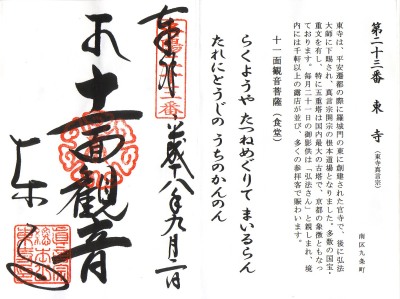 第二十三番 東寺（東寺真言宗）
南区九条町
東寺は、平安遷都の際に羅城門の東に創建された官寺で、後に弘法
大師に下賜され、真言宗開宗の根本道場となりました。多数の国宝・
重文を有し、特に五重塔は国内最大の古塔で、京都の象徴ともなっ
ております。毎月二十一日の御影供は「弘法さん」と親しまれ、境
内には千軒以上の露店が並び、多くの参拝客で賑わいます。
十一面観音菩薩（食堂）
らくようや たつねめぐりて まいるらん
たれにとうじの うちのかんのん
奉拝
平成十八年九月二日
十一面観音
東寺